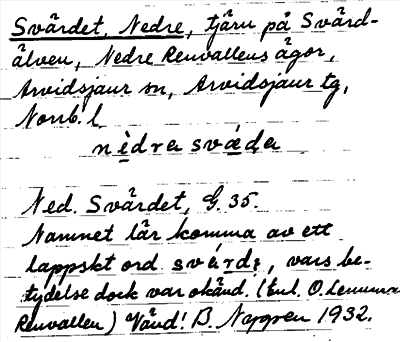 Svärdet, Nedre, tjärn på Svärd-
älven, Nedre Renvallens ägor,
Arvidsjaur sn, Arvidsjaur tg,
Norrb. l.
nèdra sváda
Ned. Svärdet, G. 35.
Namnet lär komma av ett
lappskt ord svárdi, vars be-
tydelse dock var okänd. (Enl. O. Lennman
Renvallen) Vänd! B. Nygren 1932.